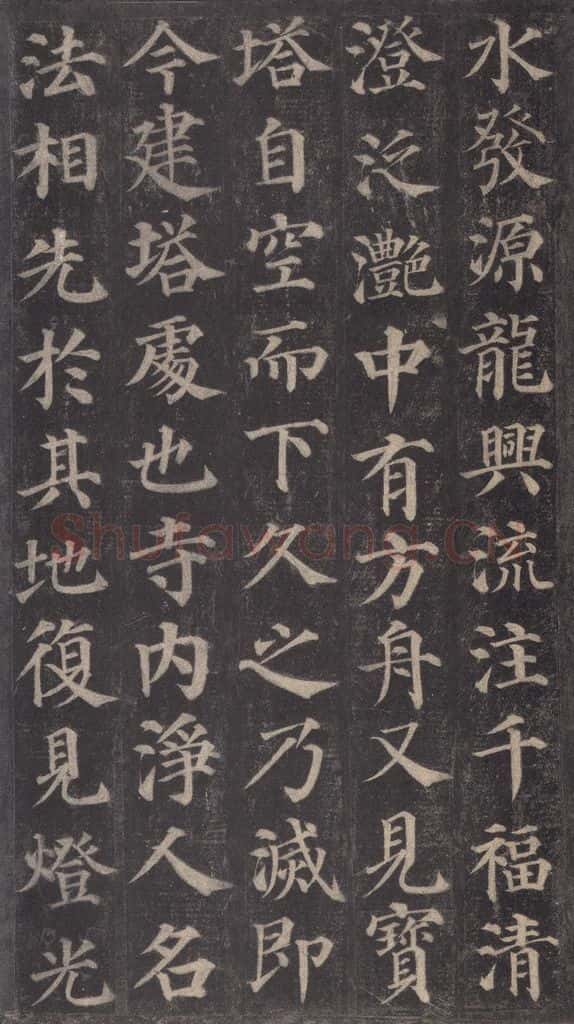 水發源龍興流注千福清
澄泛灩中有方舟又見寶
塔自空而下久之乃滅即
今建塔處也寺內淨人名
法相先於其地復見燈光
Shufawang.CN